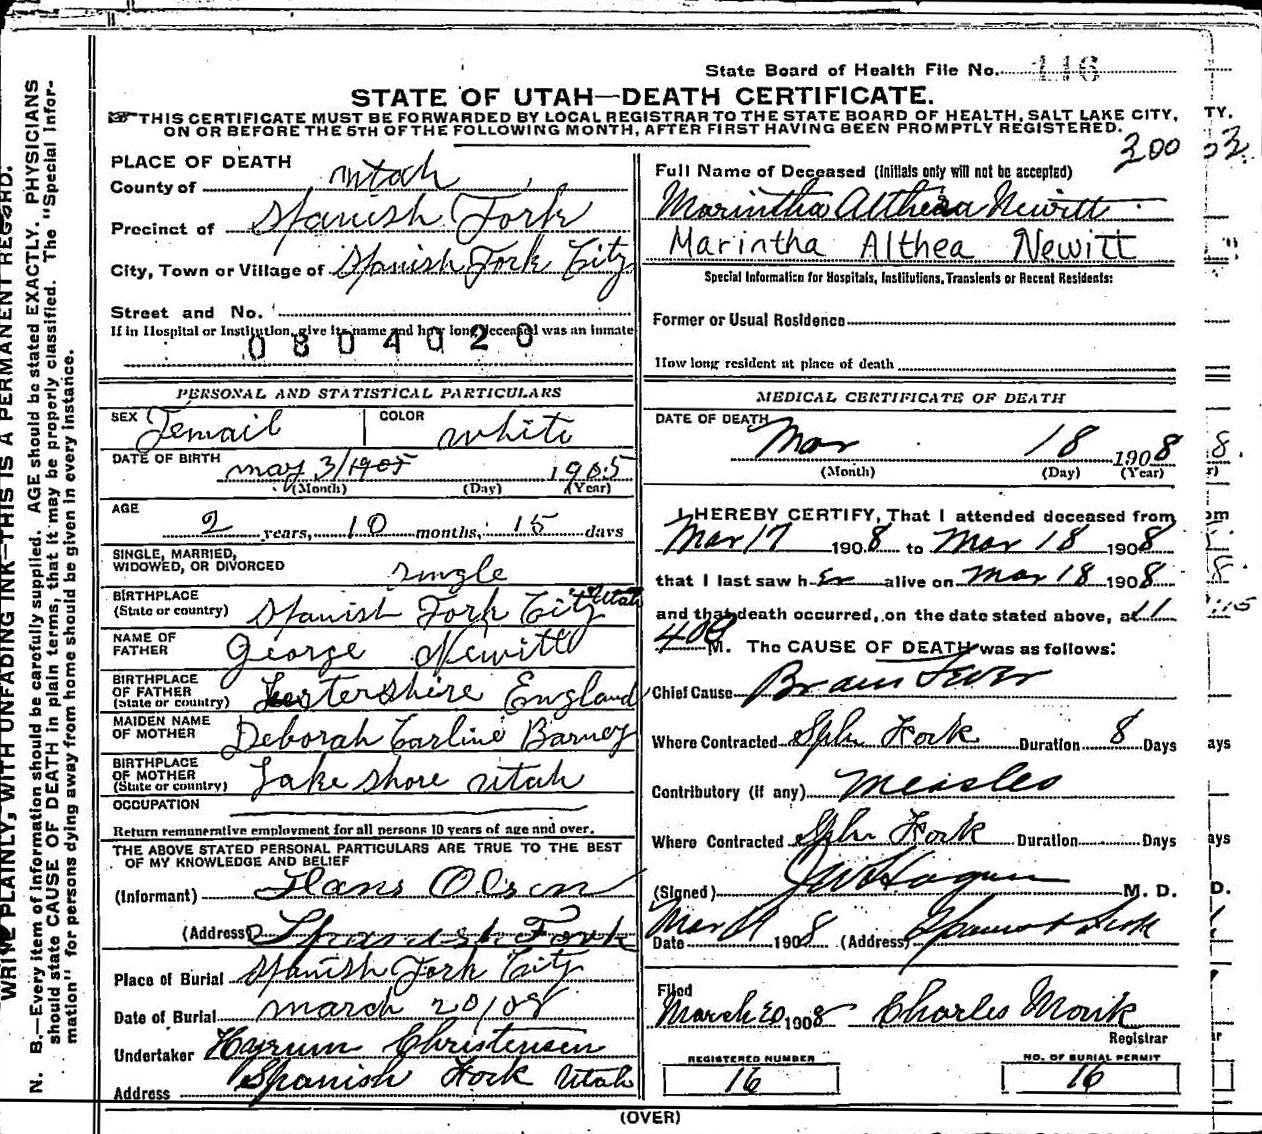 State Board of Health File No. 116
STATE OF UTAH—DEATH CERTIFICATE.
THIS CERTIFICATE MUST BE FORWARDED BY LOCAL REGISTRAR TO THE STATE BOARD OF HEALTH, SALT LAKE CITY,
ON OR BEFORE THE 5TH OF THE FOLLOWING MONTH, AFTER FIRST HAVING BEEN PROMPTLY REGISTERED.
300
WRITE PLAINLY, WITH UNFADING INK—THIS IS A PERMANENT RECORD.
N. B.—Every item of information should be carefully supplied. AGE should be stated EXACTLY. PHYSICIANS
should state CAUSE OF DEATH in plain terms, that it may be properly classified. The "Special Infor-
mation" for persons dying away from home should be given in every instance.
PLACE OF DEATH
County of Utah
Precinct of Spanish Fork
City, Town or Village of Spanish Fork City
Street and No.
If in Hospital or Institution, give its name and how long deceased was an inmate
0804020
PERSONAL AND STATISTICAL PARTICULARS
SEX Femail COLOR white
DATE OF BIRTH may 3/1905 1905
(Month) (Day) (Year)
AGE
2 years, 10 months, 15 days
SINGLE, MARRIED,
WIDOWED, OR DIVORCED single
BIRTHPLACE
(State or country) Spanish Fork City Utah
NAME OF
FATHER George Newitt
BIRTHPLACE
OF FATHER
(State or country) Lestershire England
MAIDEN NAME
OF MOTHER Deborah Carline Barney
BIRTHPLACE
OF MOTHER
(State or country) Lake Shore Utah
OCCUPATION
Return remunerative employment for all persons 10 years of age and over.
THE ABOVE STATED PERSONAL PARTICULARS ARE TRUE TO THE BEST
OF MY KNOWLEDGE AND BELIEF
(Informant) Hans Olson
(Address) Spanish Fork
Place of Burial Spanish Fork City
Date of Burial march 20/08
Undertaker Hyrum Christensen
Address Spanish Fork Utah
Full Name of Deceased (Initials only will not be accepted)
Marintha Althea Newitt
Marintha Althea Newitt
Special Information for Hospitals, Institutions, Transients or Recent Residents:
Former or Usual Residence
How long resident at place of death
MEDICAL CERTIFICATE OF DEATH
DATE OF DEATH
Mar 18 1908
(Month) (Day) (Year)
I HEREBY CERTIFY, That I attended deceased from
Mar 17 1908 to Mar 18 1908
that I last saw h er alive on Mar 18 1908
and that death occurred, on the date stated above, at 11
M. The CAUSE OF DEATH was as follows:
Chief Cause Brain Fever
Where Contracted Sph Fork Duration 8 Days
Contributory (if any) Measles
Where Contracted Sph Fork Duration Days
(Signed) M. D.
Date Mar 19 1908 (Address) Spanish Fork
Filed
March 20 1908 Charles Monk
Registrar
REGISTERED NUMBER
16
NO. OF BURIAL PERMIT
16
(OVER)